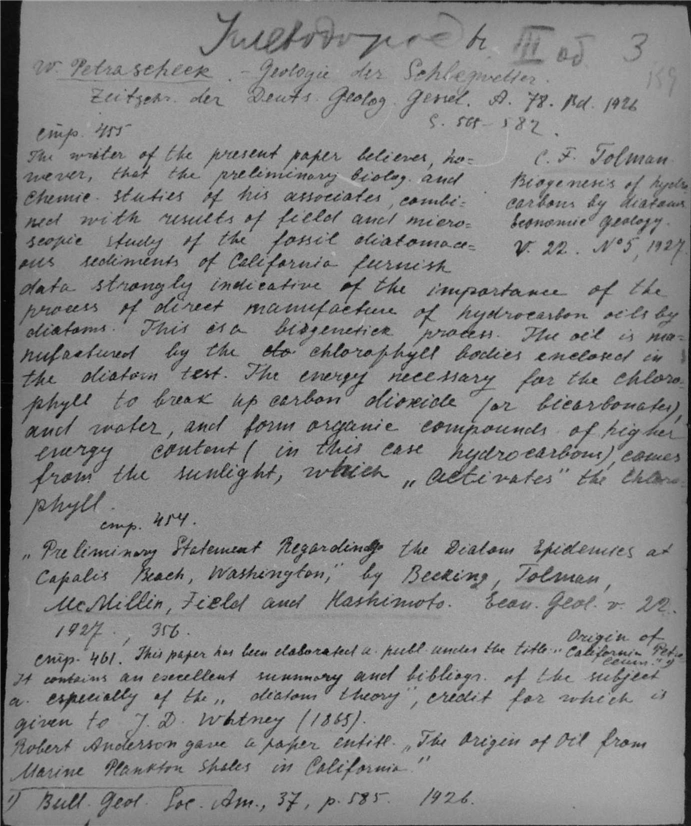 Углеводород III об 3
159
W. Petrascheck. - Geologie der
Zeitschr. der Deuts. Geolog. Gesel. A. 78. Bd. 1926
S. 582.
стр. 455
The writer of the present paper believes, ho=
wever, that the preliminary biolog. and
chemic. studies of his associates, combi=
ned with results of field and micro=
scopic study of the fossil diatomace=
ous sediments of California furnish
C. F. Tolman.
Biogenesis of hydro
carbons by diatoms
Economic geology.
V. 22. No 5, 1927
data strongly indicative of the importance of the
process of direct manufacture of hydrocarbon oils by
diatoms. This is a biogenetick process. The oil is ma=
nufactured by the chlorophyll bodies enclosed in
the diatom test. The energy necessary for the chloro=
phyll to break up carbon dioxide (or bicarbonates),
and water, and form organic compounds of higher
energy content (in this case hydrocarbons) comes
from the sunlight, which „activates" the chloro=
phyll.
стр. 454.
„Preliminary Statement Regarding the Diatom Epidemics at
Copalis Beach, Washington," by Becking, Tolman,
McMillin, Field and Hashimoto. Econ. Geol. v. 22.
1927., 356.
стр. 461. This paper has been elaborated a. publ. under the title „Origin of
California Petro=
leum." 1)
It contains an excellent summary and bibliogr. of the subject
a. especially of the „diatom theory", credit for which is
given to J. D. Whtney (1865).
Robert Anderson gave a paper entitl. „The Origin of Oil from
Marine Plankton Shales in California."
1) Bull. Geol. Soc. Am., 37, p. 585. 1926.